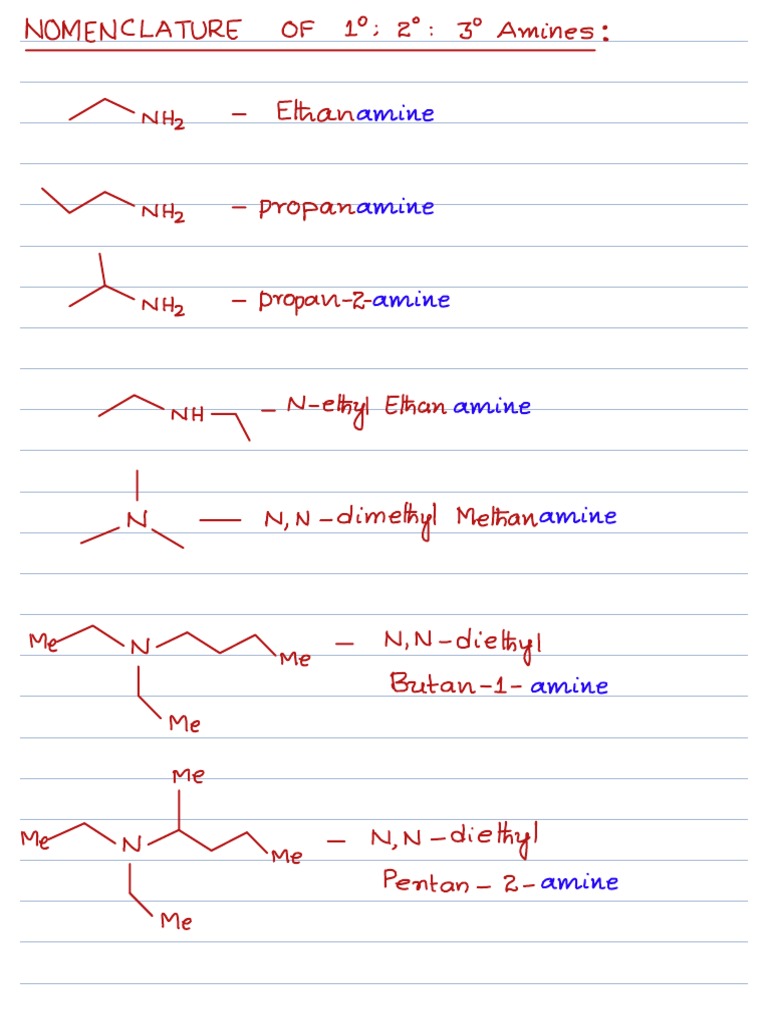 NOMENCLATURE OF 1°; 2°: 3° Amines:
NH2 - Ethanamine
NH2 - propanamine
NH2 - propan-2-amine
NH - N-ethyl Ethanamine
N - N,N-dimethyl Methanamine
Me N Me - N,N-diethyl
Butan-1-amine
Me
Me
Me N Me - N,N-diethyl
Pentan-2-amine
Me